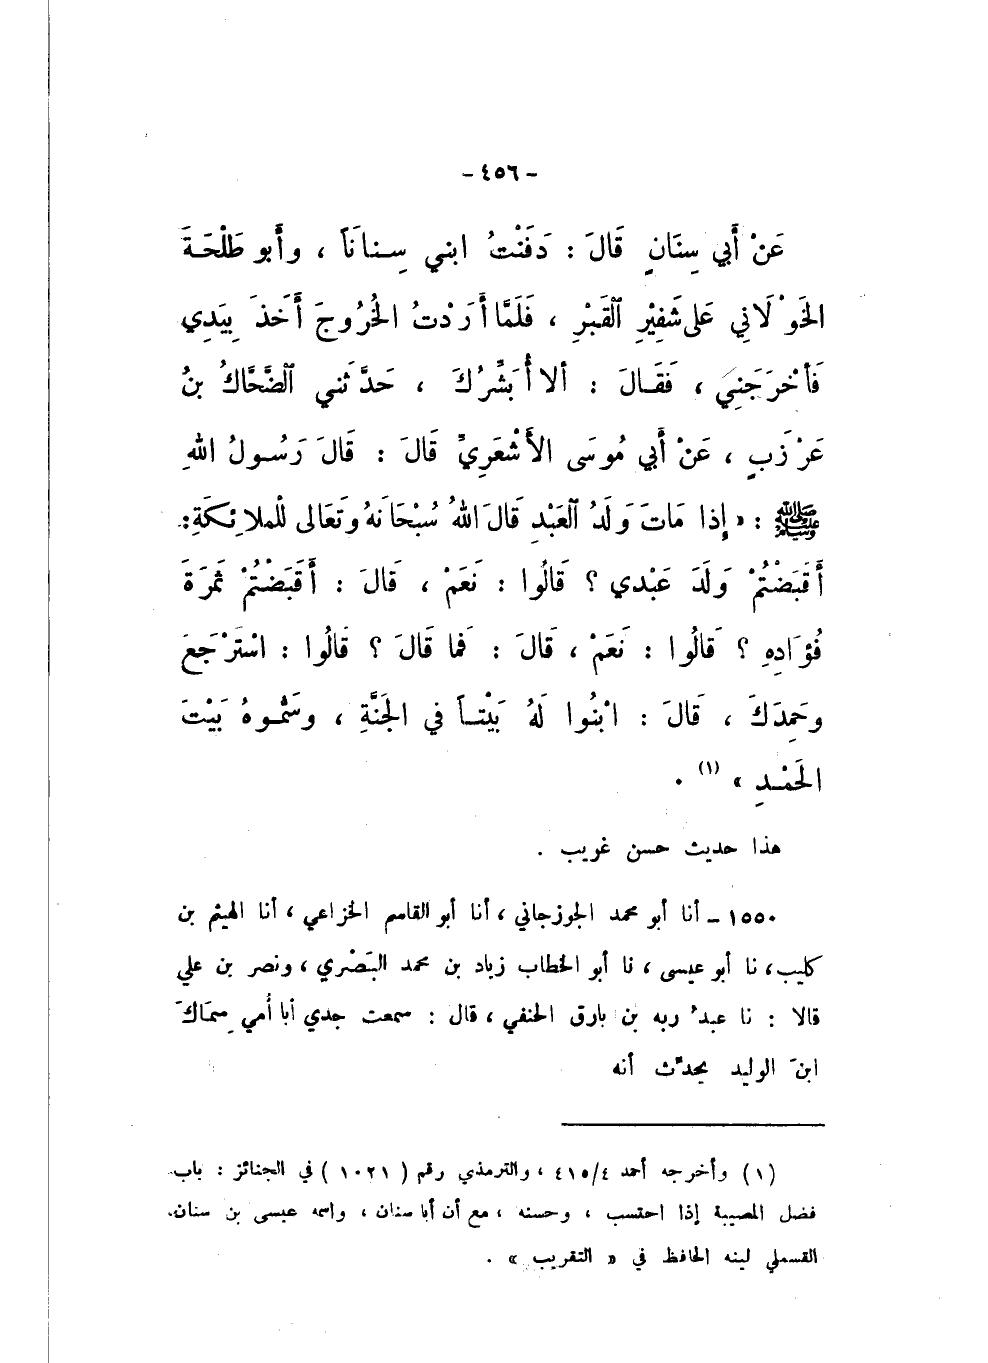 - ٤٥٦ -
عَنْ أَبي سِنَانٍ قَالَ : دَفَنْتُ ابني سِناناً ، وأَبو طَلْحَةَ
الخَوْلَاني عَلى شَفِيْرِ ٱلقَبْرِ ، فَلَمَّا أَرَدْتُ الخُرُوجَ أَخَذَ بِيَدِي
فَأَخْرَجَنِي ، فَقَالَ : ألا أُبَشِّرُكَ ، حَدَّثَني ٱلضَّحَّاكُ بنُ
عَرْزَبٍ ، عَنْ أَبي مُوسَى الأَشْعَرِيِّ قَالَ : قَالَ رَسُولُ اللهِ
ﷺ : « إِذا مَاتَ وَلَدُ ٱلعَبْدِ قَالَ اللهُ سُبْحَانَهُ وتَعَالى لِلْملائِكَةِ :
أَقَبَضْتُمْ وَلَدَ عَبْدي ؟ قَالُوا : نَعَمْ ، قَالَ : أَقَبَضْتُمْ ثَمَرَةَ
فُؤَادِهِ ؟ قَالُوا : نَعَمْ ، قَالَ : فَما قَالَ ؟ قَالُوا : اسْتَرْجَعَ
وحَمِدَكَ ، قَالَ : ابْنُوا لَهُ بَيْتاً في الجَنَّةِ ، وسَمُّوهُ بَيْتَ
الحَمْدِ » (١) .
هذا حديث حسن غريب .
١٥٥٠ - أنا أبو محمد الجوزجاني ، أنا أبو القاسم الخزاعي ، أنا الهيثم بن
كليب ، نا أبو عيسى ، نا أبو الخطاب زياد بن محمد البَصْري ، ونصر بن علي
قالا : نا عبدُ ربه بن بارق الحنفي ، قال : سمعت جدي أبا أُمي سِمَاكَ
ابنَ الوليد يحدِّث أنه
(١) وأخرجه أحمد ٤/٤١٥ ، والترمذي رقم ( ١٠٢١ ) في الجنائز : باب
فضل المصيبة إذا احتسب ، وحسنه ، مع أن أبا سنان ، واسمه عيسى بن سنان
القسملي لينه الحافظ في « التقريب » .